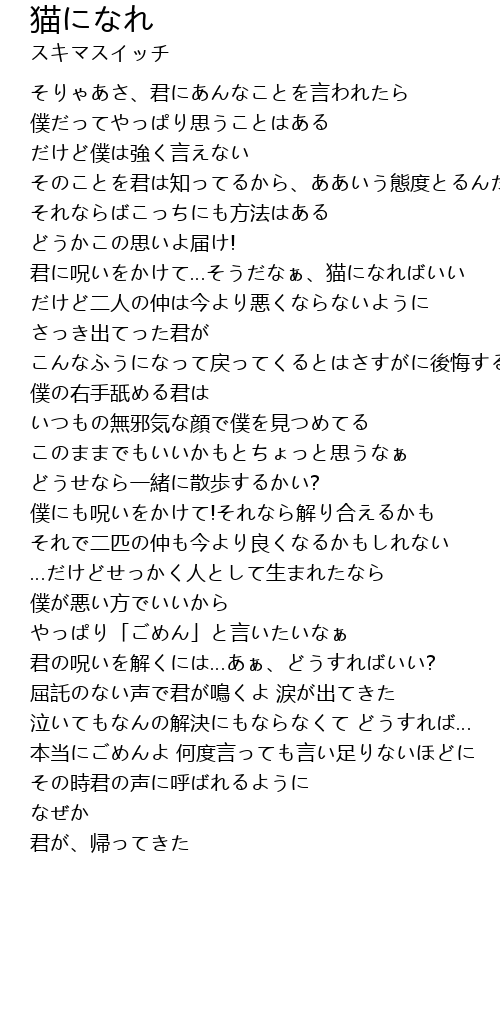 猫になれ
スキマスイッチ
そりゃあさ、君にあんなことを言われたら
僕だってやっぱり思うことはある
だけど僕は強く言えない
そのことを君は知ってるから、ああいう態度とるんだ
それならばこっちにも方法はある
どうかこの思いよ届け!
君に呪いをかけて...そうだなぁ、猫になればいい
だけど二人の仲は今より悪くならないように
さっき出てった君が
こんなふうになって戻ってくるとはさすがに後悔する
僕の右手舐める君は
いつもの無邪気な顔で僕を見つめてる
このままでもいいかもとちょっと思うなぁ
どうせなら一緒に散歩するかい?
僕にも呪いをかけて!それなら解り合えるかも
それで二匹の仲も今より良くなるかもしれない
...だけどせっかく人として生まれたなら
僕が悪い方でいいから
やっぱり「ごめん」と言いたいなぁ
君の呪いを解くには...あぁ、どうすればいい?
屈託のない声で君が鳴くよ 涙が出てきた
泣いてもなんの解決にもならなくて どうすれば...
本当にごめんよ 何度言っても言い足りないほどに
その時君の声に呼ばれるように
なぜか
君が、帰ってきた